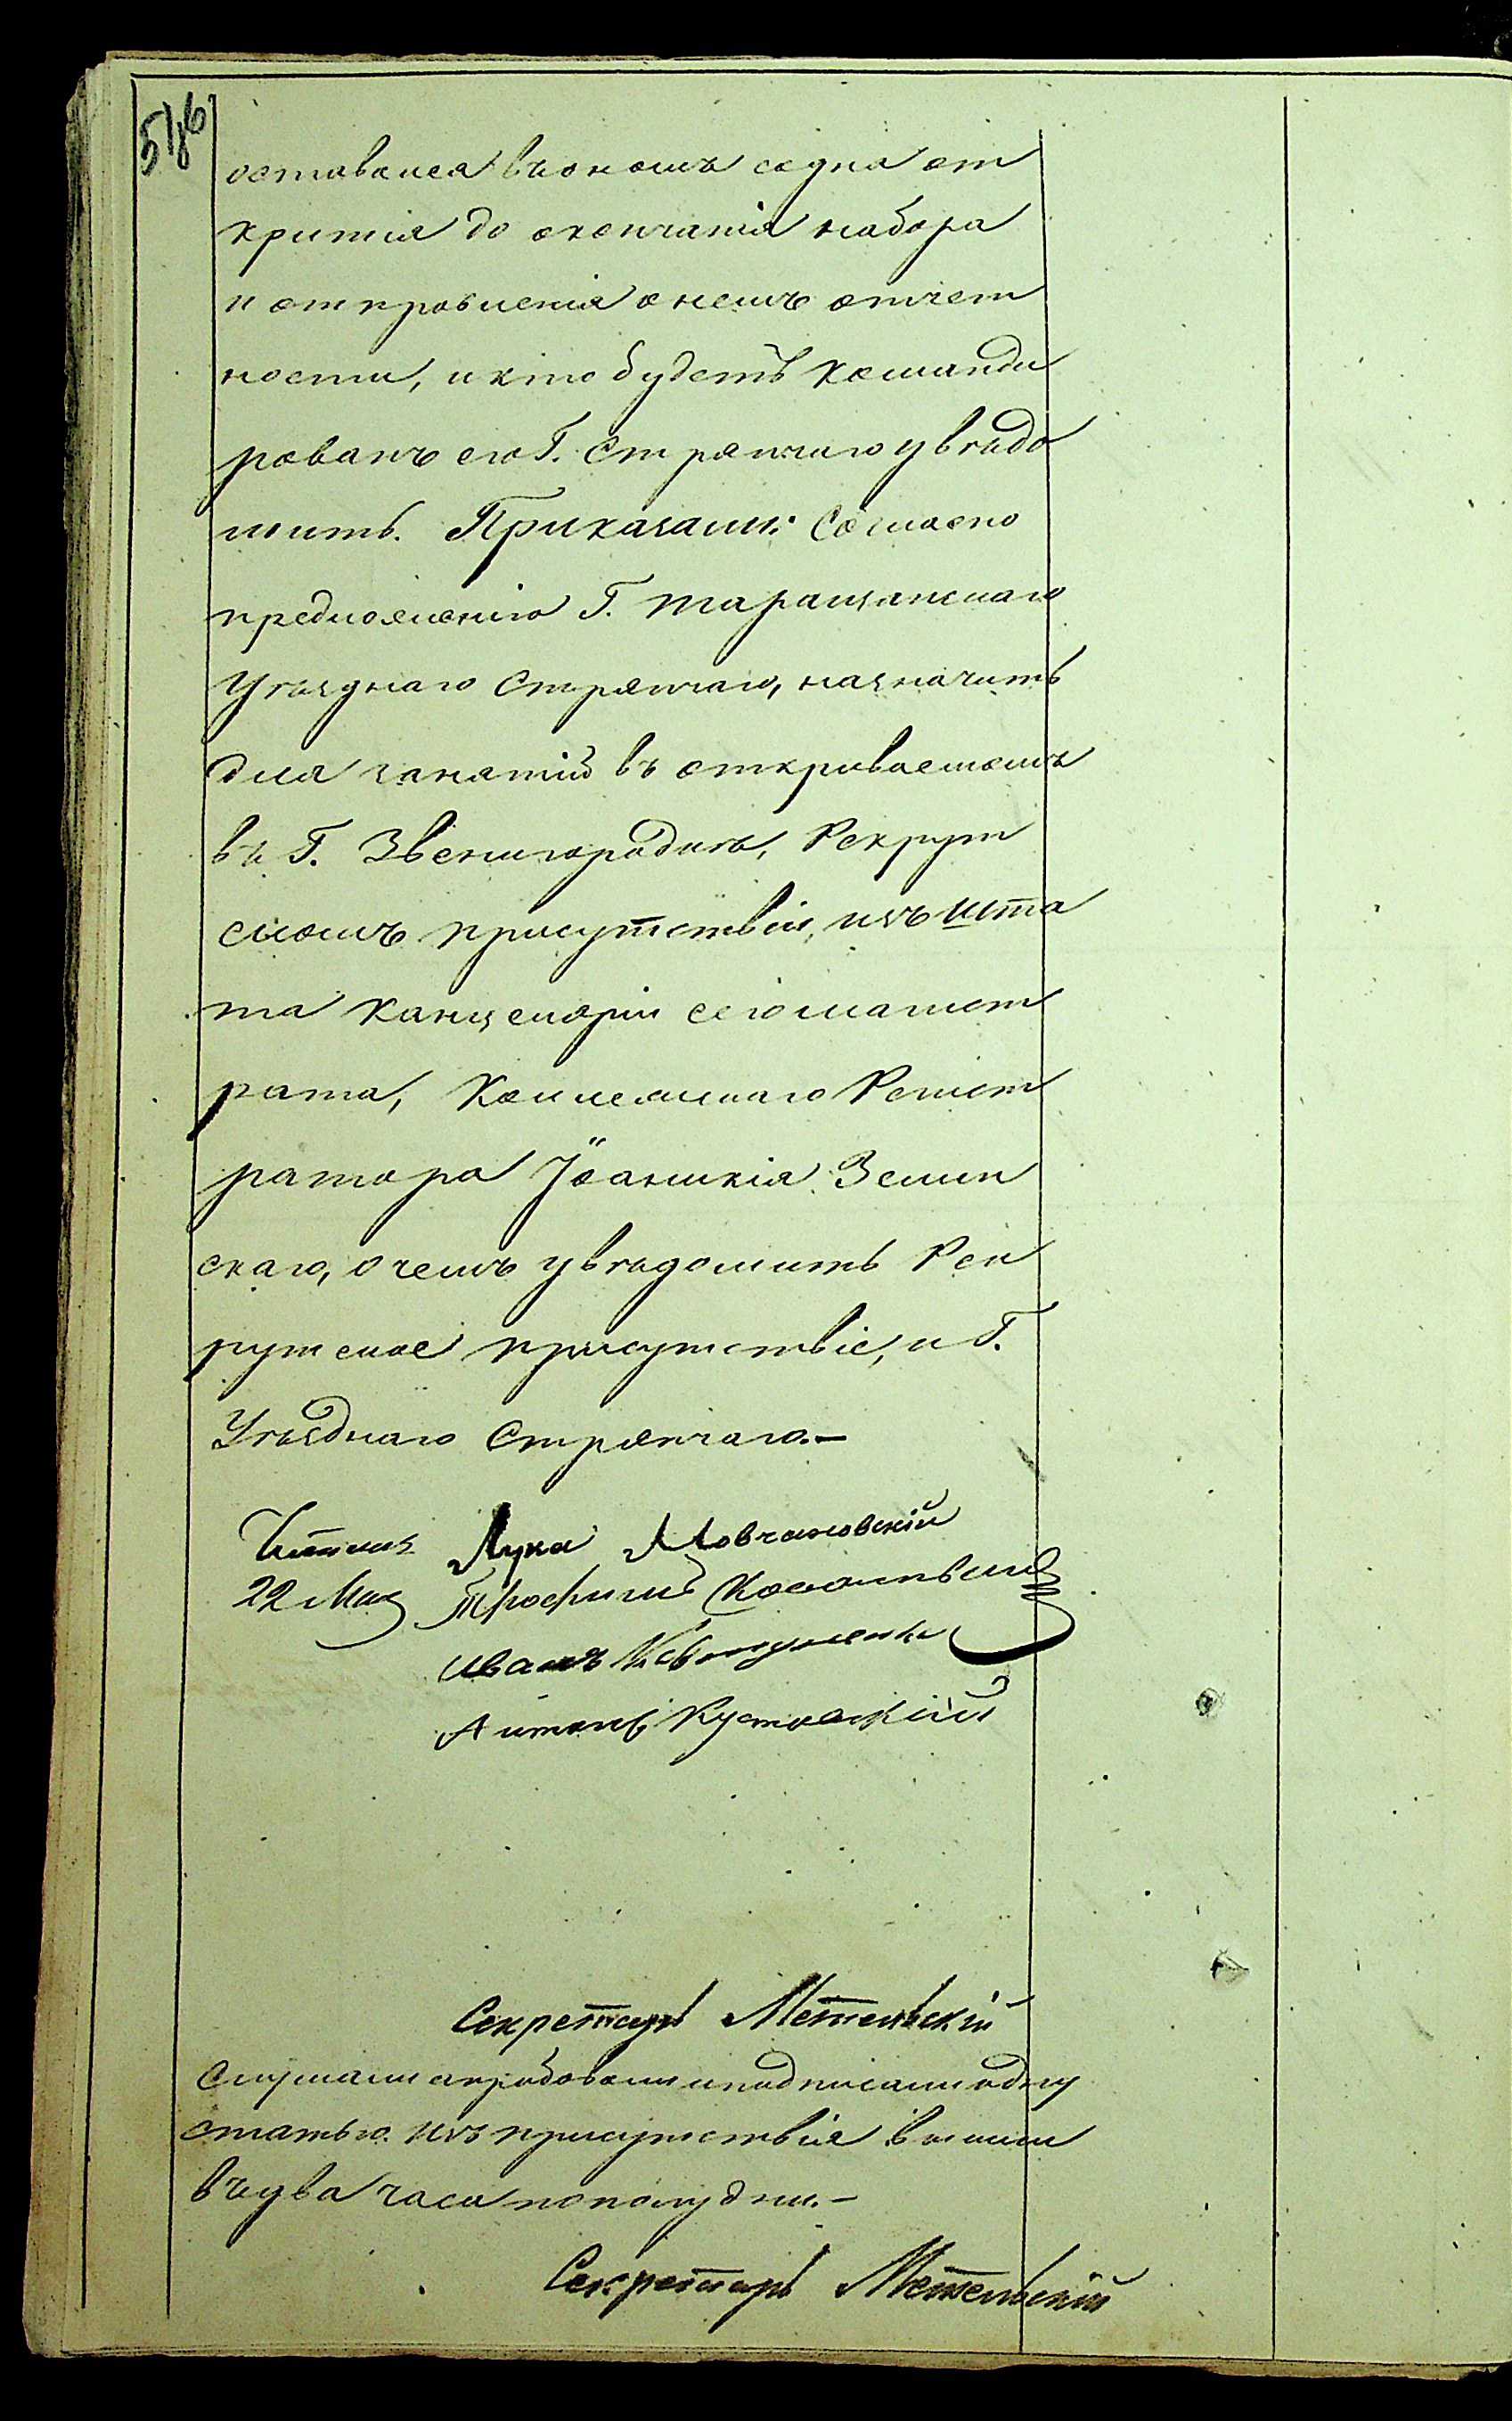 516
оставался въ ономъ со дна от
критія до окончанія набора
и отправленія о немъ отчет
ности, и кто будетъ команди
рованъ его Г. Стряпчаго увѣдо
мить. Приказали: Согласно
предложенію Г. Таращанскаго
Уѣзднаго Стряпчаго, назначить
для занятій въ откриваемомъ
въ Г. Звенигородкѣ, Рекрут
скомъ присутствіи, изъ шта
та Канцеляріи сего магист
рата, Коллежскаго Регист
ратора Іоаникія Зелин
скаго, о чемъ увѣдомить Рек
рутское присутствіе, и Г.
Уѣзднаго Стряпчаго.—
Лука Мовчановскій
22 Мая Трофимъ
Иванъ
Антонъ Кустовскій
Секретарь Метельскій
Слушали апробовали и подписали одну
статью. изъ присутствія вышли
въ два часа по полудни.—
Секретарь Метельскій